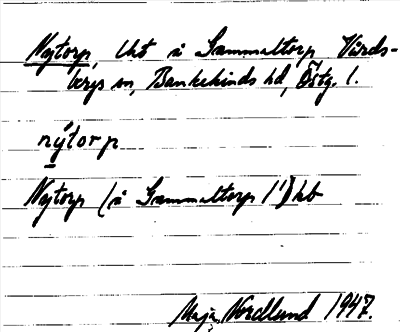 Nytorp, lht å Gammaltorp Vårds-
bergs sn, Bankekinds hd, Östg. l.
nýtorp
Nytorp (å Gammaltorp 1¹) kb
Maja Nordlund 1947.